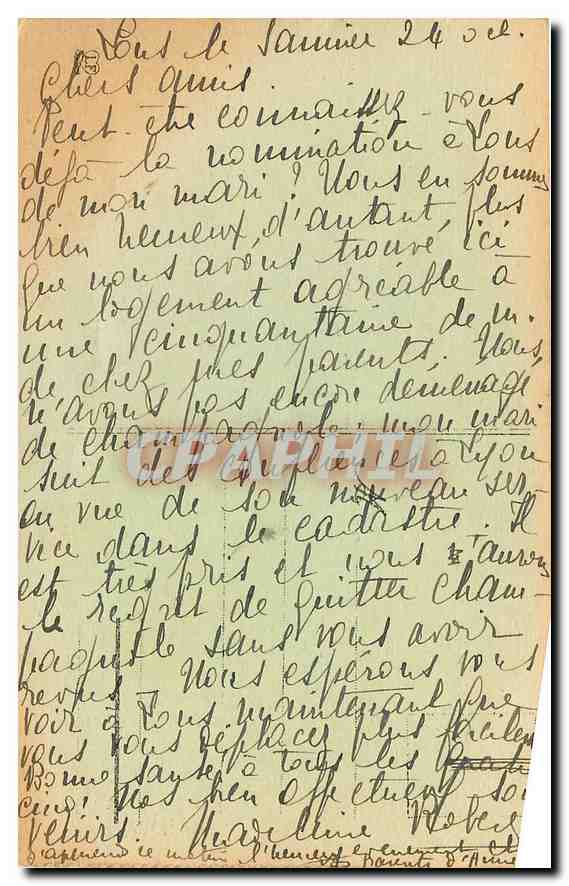 Lons le Saunier 24 oct.
Chers amis.
Peut-être connaissez-vous
déjà la nomination à Lons
de mon mari ? Nous en sommes
bien heureux, d'autant plus
que nous avons trouvé ici
un logement agréable à
une cinquantaine de m.
de chez mes parents. Nous
n'avons pas encore déménagé
de Champagnole : mon mari
suit des conférences à Lyon
en vue de son nouveau ser-
vice dans le cadastre. Il
est très pris et nous aurons
le regret de quitter Cham-
pagnole sans vous avoir
revus. Nous espérons vous
voir à Lons maintenant que
vous vous déplacez plus facilem
Bonne santé à tous les
cinq ! Nos bien affectueux sou
venirs. Madeleine Robert
J'apprends ce matin l'heureux evenement
parents d'Anne
CPAPHIL